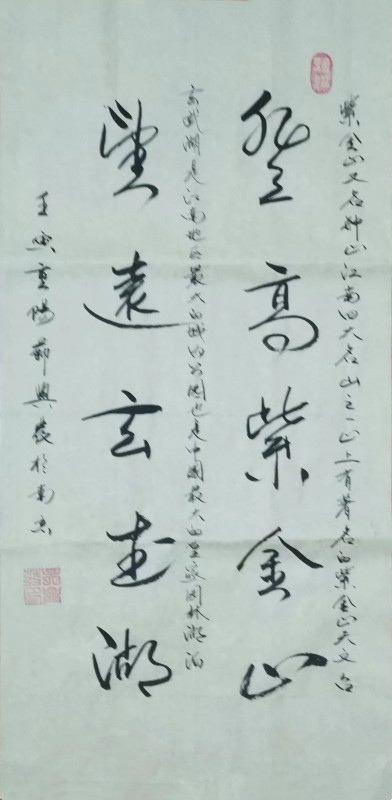 紫金山又名钟山江南四大名山之一山上有著名的紫金山天文台
登高紫金山
玄武湖是江南地区最大的城内公园也是中国最大的皇家园林湖泊
望遠玄武湖
壬寅重陽 興 於南京